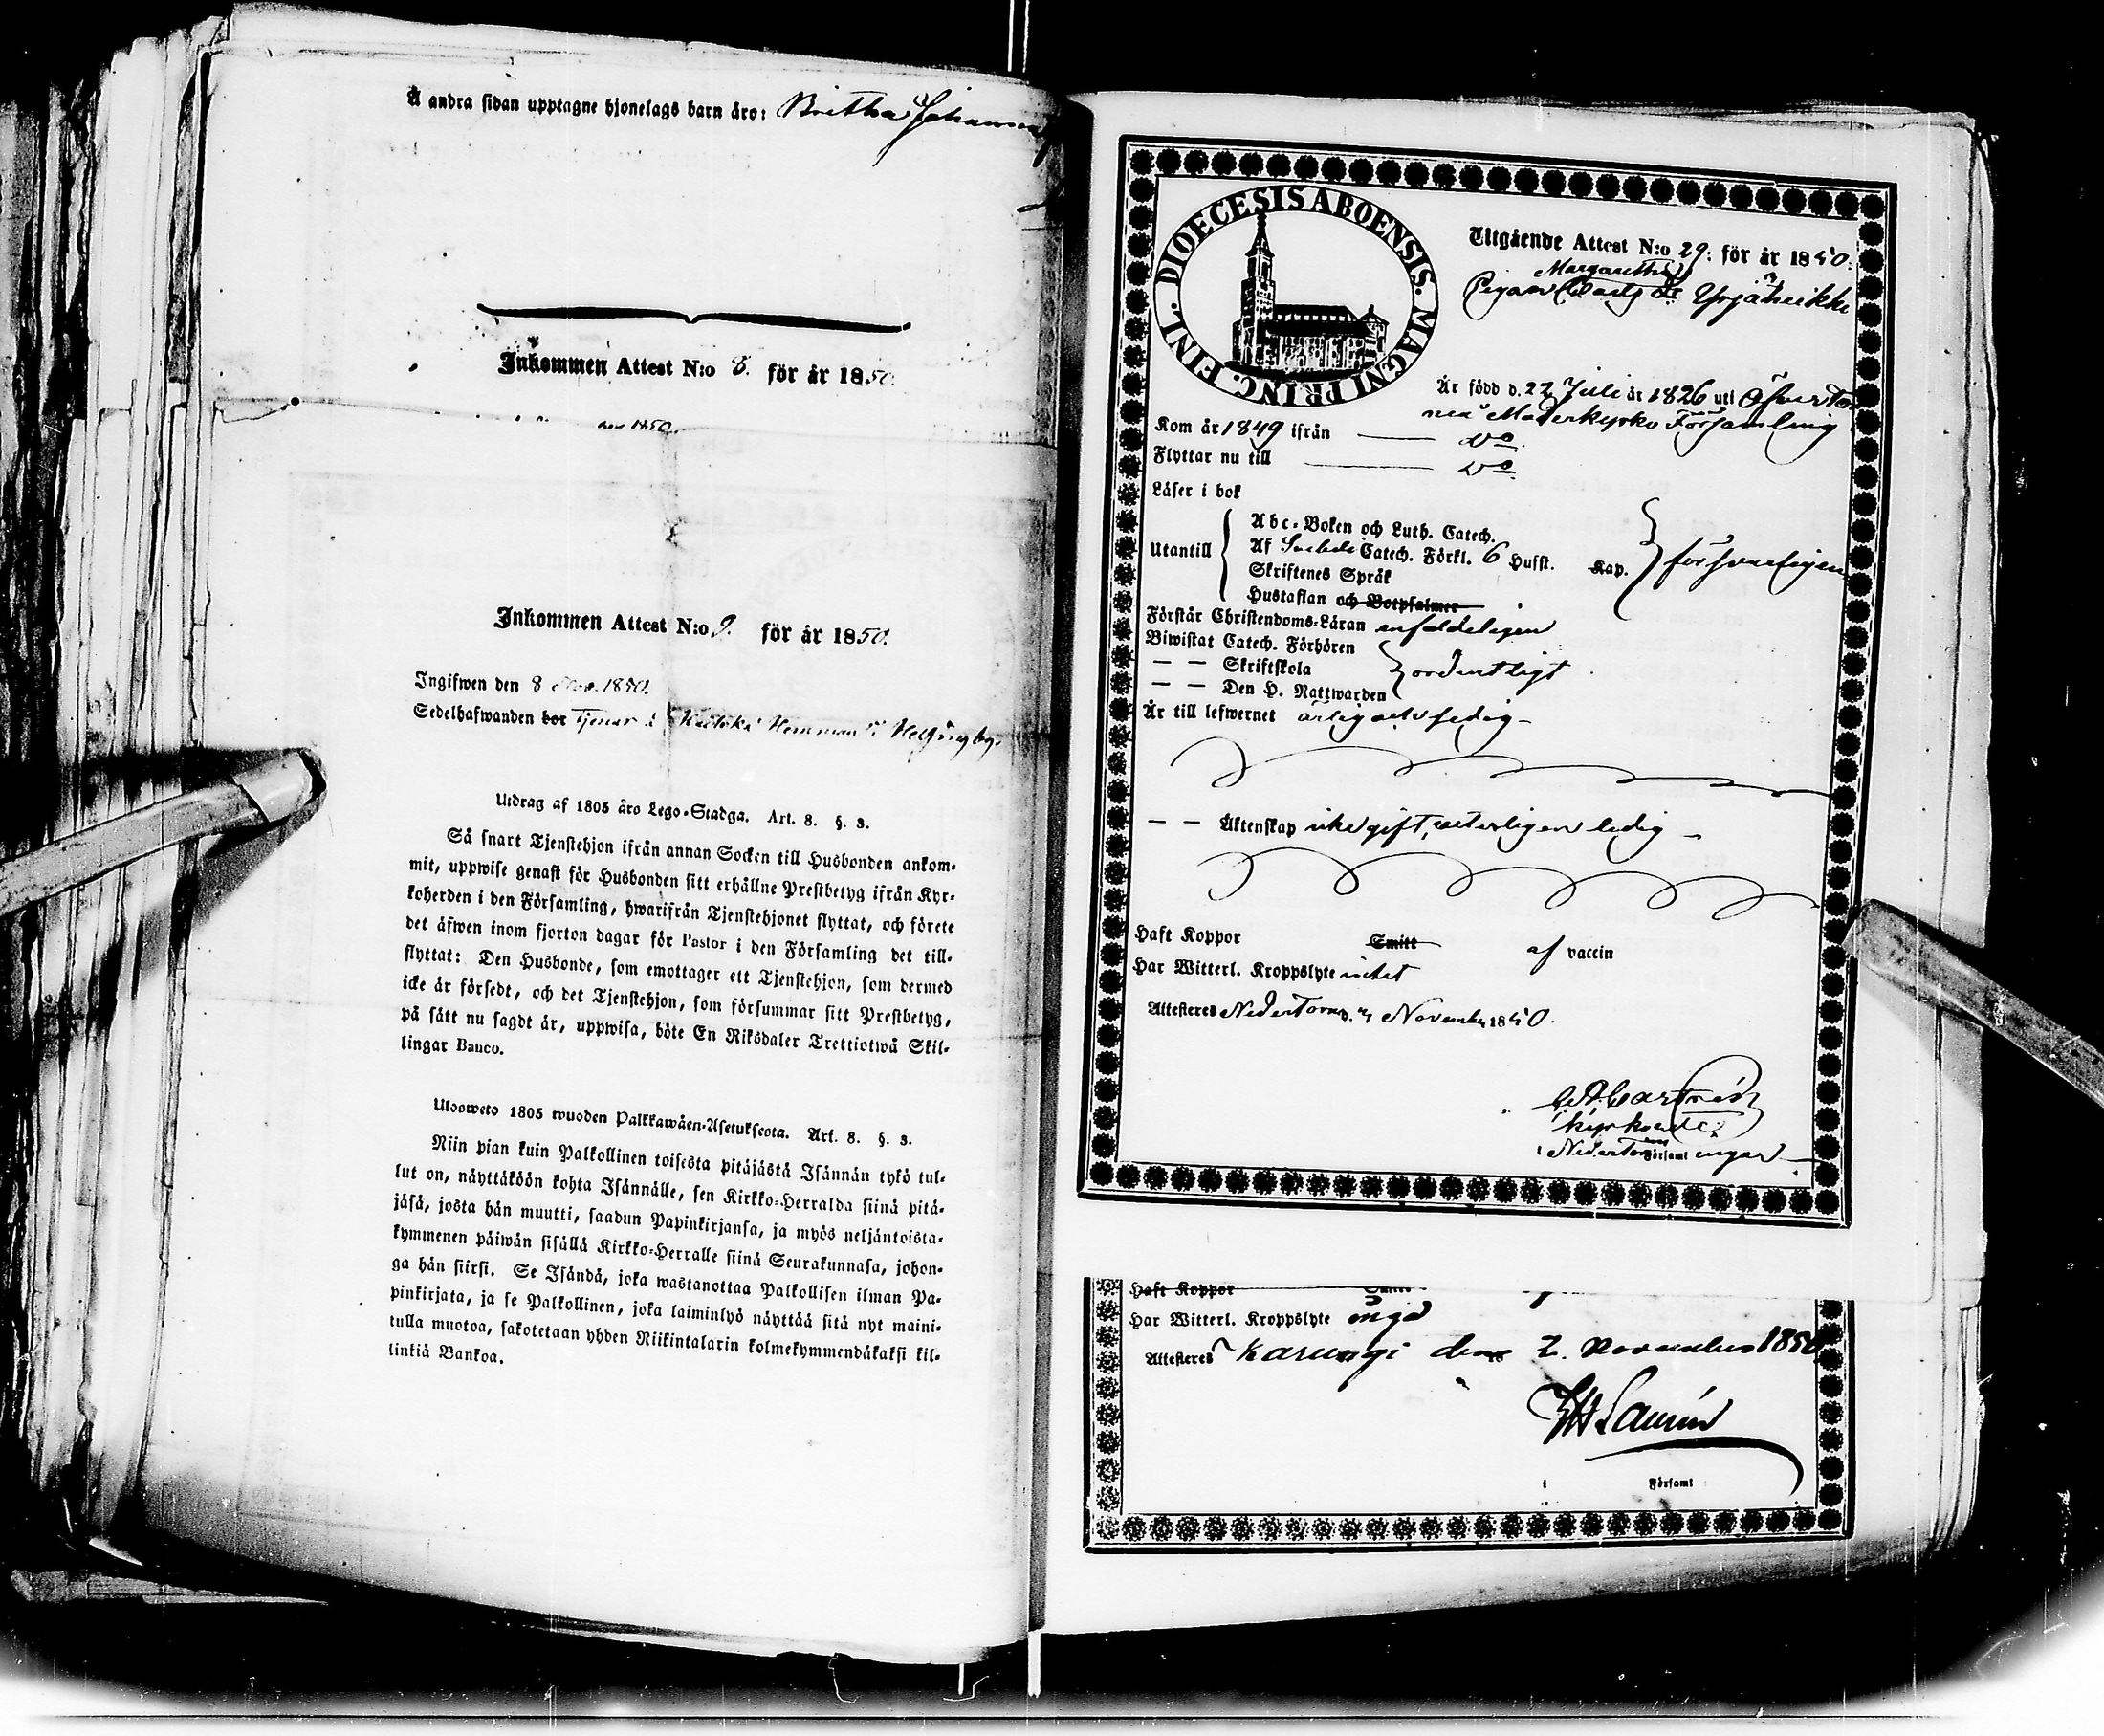 Å andra sidan upptagne hjonelags barn äro: Britha Johanna
Inkommen Attest N:o 8. för år 1850.
1850.
Inkommen Attest N:o 9. för år 1850.
Ingifwen den 8 1850.
Sedelhafwanden bor tjenar i Hemman i by.
Utdrag af 1805 års Lego-Stadga. Art. 8. §. 3.
Så snart Tjenstehjon ifrån annan Socken till Husbonden ankom-
mit, uppwise genast för Husbonden sitt erhållne Prestbetyg ifrån Kyr-
koherden i den Församling, hwarifrån Tjenstehjonet flyttat, och förete
det äfwen inom fjorton dagar för Pastor i den Församling det till-
flyttat: Den Husbonde, som emottager ett Tjenstehjon, som dermed
icke är försedt, och det Tjenstehjon, som försummar sitt Prestbetyg,
på sätt nu sagdt är, uppwisa, böte En Riksdaler Trettiotwå Skil-
lingar Banco.
Ulosweto 1805 wuoden Palkkawäen-Asetuksesta. Art. 8. §. 3.
Niin pian kuin Palkollinen toisesta pitäjästä Isännän tykö tul-
lut on, näyttäköön kohta Isännälle, sen Kirkko-Herralda siinä pitä-
jäsä, josta hän muutti, saadun Papinkirjansa, ja myös neljäntoista-
kymmenen päiwän sisällä Kirkko-Herralle siinä Seurakunnasa, johon-
ga hän siirsi. Se Isändä, joka wastanottaa Palkollisen ilman Pa-
pinkirjata, ja se Palkollinen, joka laiminlyö näyttää sitä nyt maini-
tulla muotoa, sakotetaan yhden Riikintalarin kolmekymmendäkaksi kil-
linkiä Bankoa.
DIOECESIS ABOENSIS. MAGNI PRINC. FINL.
Utgående Attest N:o 29. för år 1850.
Margaretha
Pigan Yrjänheikki
Är född d. 22 Juli år 1826 uti Öfvertor
neå Moderkyrko Församling
Kom år 1849 ifrån — Do
Flyttar nu till — Do
Läser i bok
Utantill
Abc-Boken och Luth. Catech.
Af Svebeli Catech. Förkl. 6 Hufst. Kap.
Skriftenes Språk
Hustaflan och Botpsalmer
försvarligen
Förstår Christendoms-Läran enfaldeligen
Biwistat Catech. Förhören
— — Skriftskola
— — Den H. Nattwarden
ordentligt
Är till lefwernet ärlig och sedig —
— — Äktenskap icke gift, veterligen ledig —
Haft Koppor Smitt af vaccin
Har Witterl. Kroppslyte intet
Attesteres NederTorneå d. 7 November 1850.
Kyrkoherde
i NederTorneå Församl ingar
Haft Koppor Smitt
Har Witterl. Kroppslyte inga
Attesteres Karungi den 2. November 1850
Församl